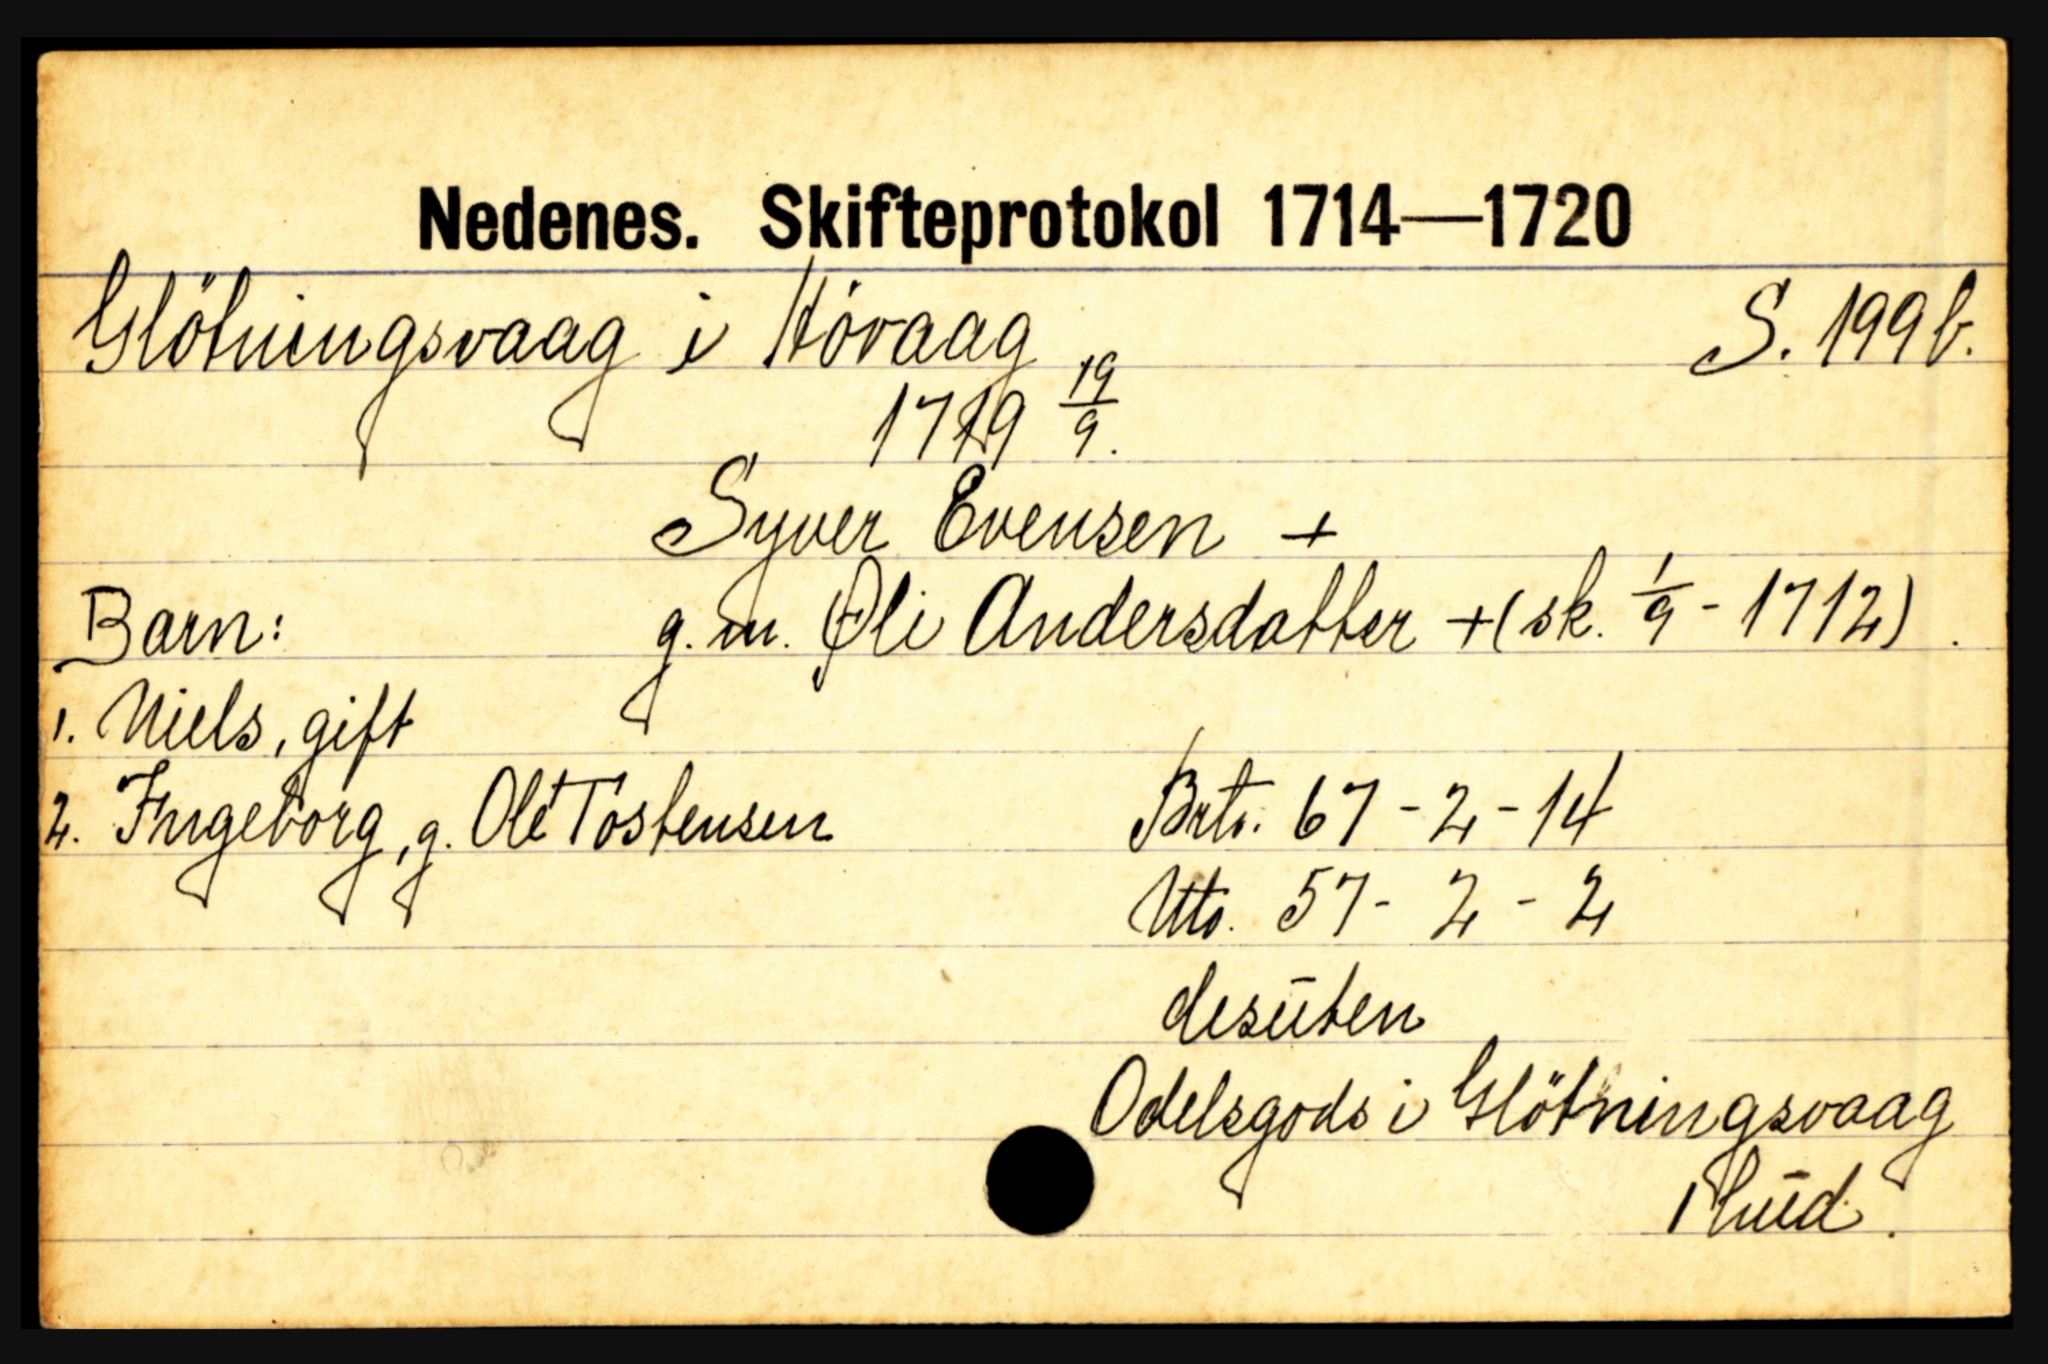 Nedenes. Skifteprotokol 1714—1720
Glötningsvaag i Hövaag S. 199b.
1719 19/9.
Syver Evensen +
Barn: g.m. Øli Andersdatter + (sk. 1/9 - 1712).
1. Niels, gift
2. Ingeborg, g. Ole Tostensen Brto. 67 - 2 - 14
Nto. 57 - 2 - 2
desūten
Odelsgods i Glötningsvaag
1 hūd.